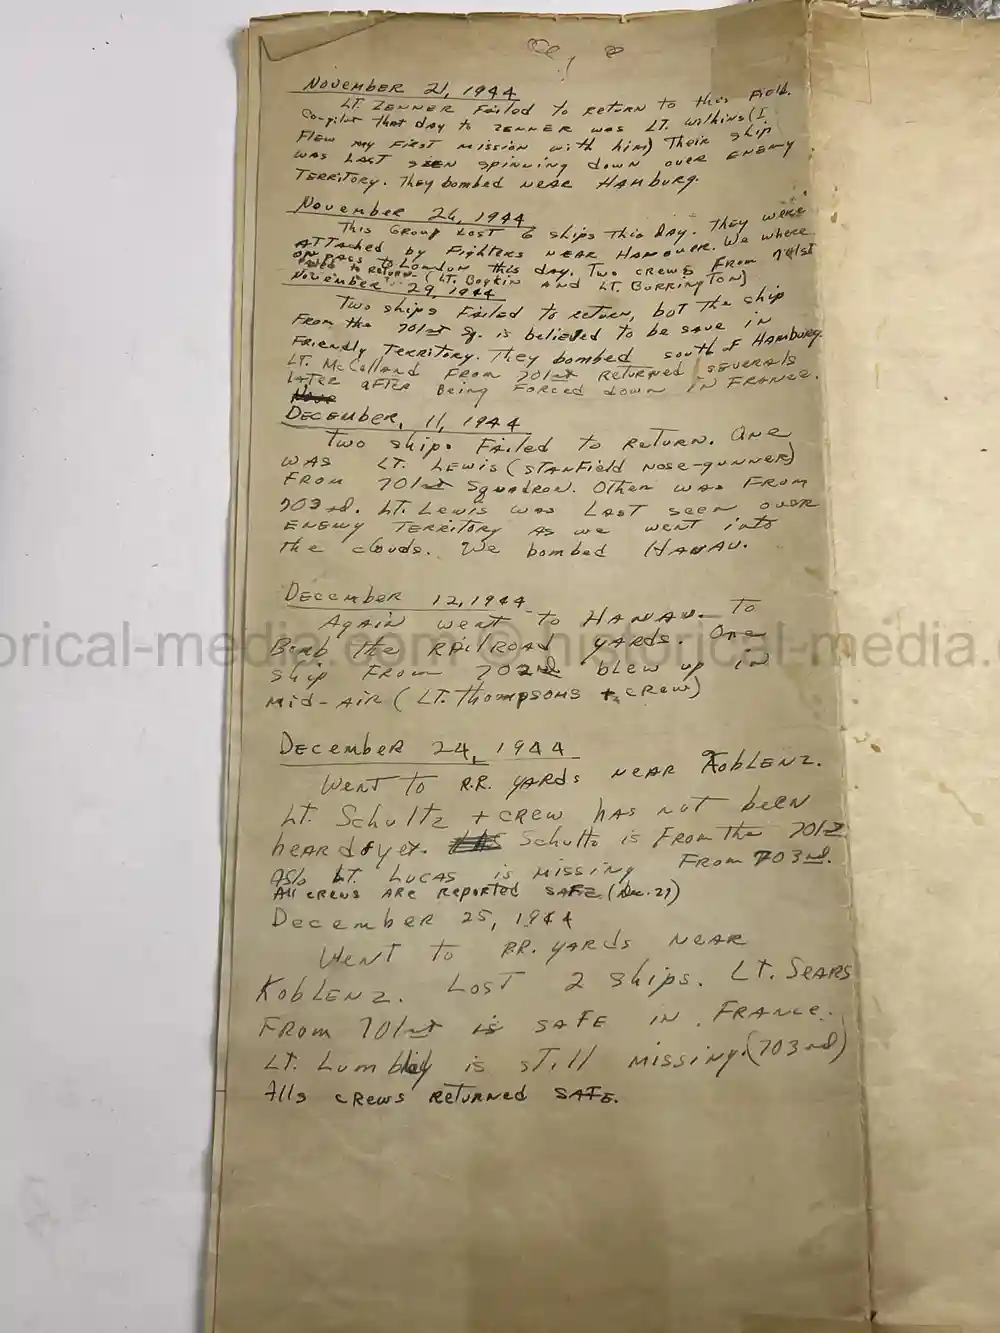 NOVEMBER 21, 1944
LT. ZENNER Failed to return to this Field.
Co-pilot that day to ZENNER was LT. Wilkins (I
Flew my First mission with him) Their ship
was Last seen spinning down over ENEMY
TERRITORY. They bombed NEAR HAMBURG.
November 26, 1944
This Group Lost 6 ships this day. They were
ATTAched by Fighters NEAR HANOVER. We where
on pass to London this day. Two crews From 701st
Failed to return (LT. Boykin AND LT. BURRINGTON)
November 29, 1944
Two ships Failed to return, but the ship
From the 701st Sq. is believed to be save in
FRIENDLY TERRITORY. They bombed south of HAMBURG.
LT. McCelland From 701st Returned severals
LATER AFTER Being FORCED down IN FRANCE.
DECEMBER, 11, 1944
Two ships Failed to return. One
was LT. LEWIS (STANFIELD NOSE-GUNNER)
FROM 701st Squadron. Other was FROM
703rd. LT. Lewis was LAST seen over
ENEMY TERRITORY AS we went into
the clouds. We bombed HANAU.
DECEMBER 12, 1944
Again went to HANAU. To
Bomb the RAILROAD YARDS. One
ship From 702nd blew up in
Mid-AIR (LT. Thompsoms + crew)
DECEMBER 24, 1944
Went to R.R. YARDS NEAR KOBLENZ.
LT. Schultz + CREW has not been
heard of yet. Schultz is From the 701st
Also LT. LUCAS is MISSING FROM 703rd.
All crews ARE Reported SAFE (Dec. 29)
DECEMBER 25, 1944
Went to R.R. YARDS NEAR
KOBLENZ. LOST 2 ships. LT. SEARS
FROM 701st is SAFE IN FRANCE.
LT. is still missing. (703rd)
Alls crews returned SAFE.
orical-media.com © historical-media.